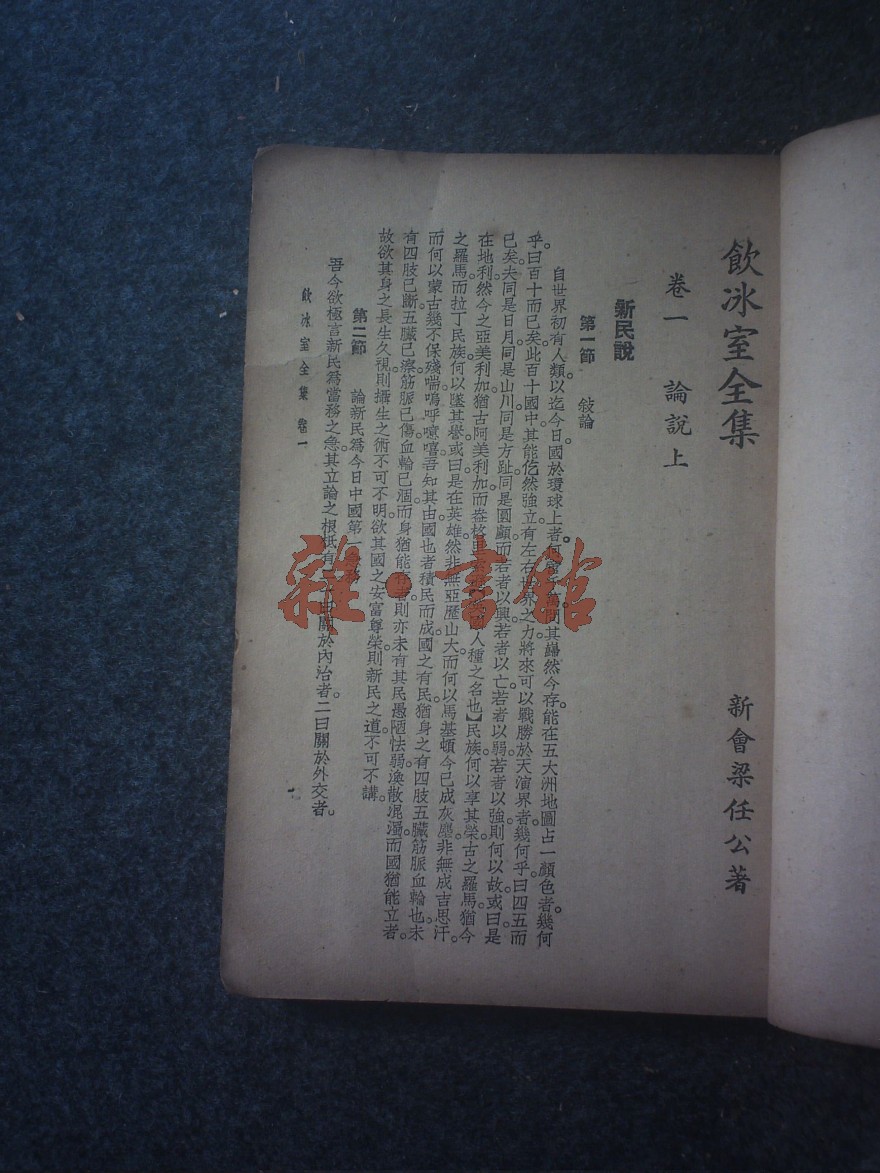 飲冰室全集
新會梁任公著
卷一　論說上
新民說
第一節　敍論
自世界初有人類以迄今日國於環球上者何啻千萬問其巋然今存能在五大洲地圖占一顏色者幾何
乎。曰百十而已矣。此百十國中其能屹然強立有左右世界之力將來可以戰勝於天演界者幾何乎。曰四五而
已矣。夫同是日月同是山川同是方趾同是圓顱而若者以興若者以亡若者以弱若者以強則何以故。或曰是
在地利。然今之亞美利加猶古阿美利加而盎格里人種之名也】民族何以享其榮。古之羅馬猶今
之羅馬而拉丁民族何以墜其譽。或曰是在英雄。然非無亞歷山大而何以馬基頓今已成灰塵。非無成吉思汗。
而何以蒙古幾不保殘喘。嗚呼噫嘻吾知其由。國也者積民而成。國之有民猶身之有四肢五臟筋脈血輪也。未
有四肢已斷五臟已瘵筋脈已傷血輪已涸而身猶能存者。則亦未有其民愚陋怯弱渙散混濁而國猶能立者。
故欲其身之長生久視則攝生之術不可不明。欲其國之安富尊榮則新民之道不可不講。
第二節　論新民爲今日中國第一
吾今欲極言新民爲當務之急。其立論之根柢有關於內治者二曰關於外交者。
飲冰室全集　卷一
一
雜·書館